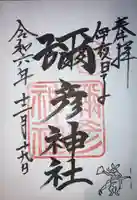 奉拝
伊夜日子
彌彦神社
令和六年十二月十六日